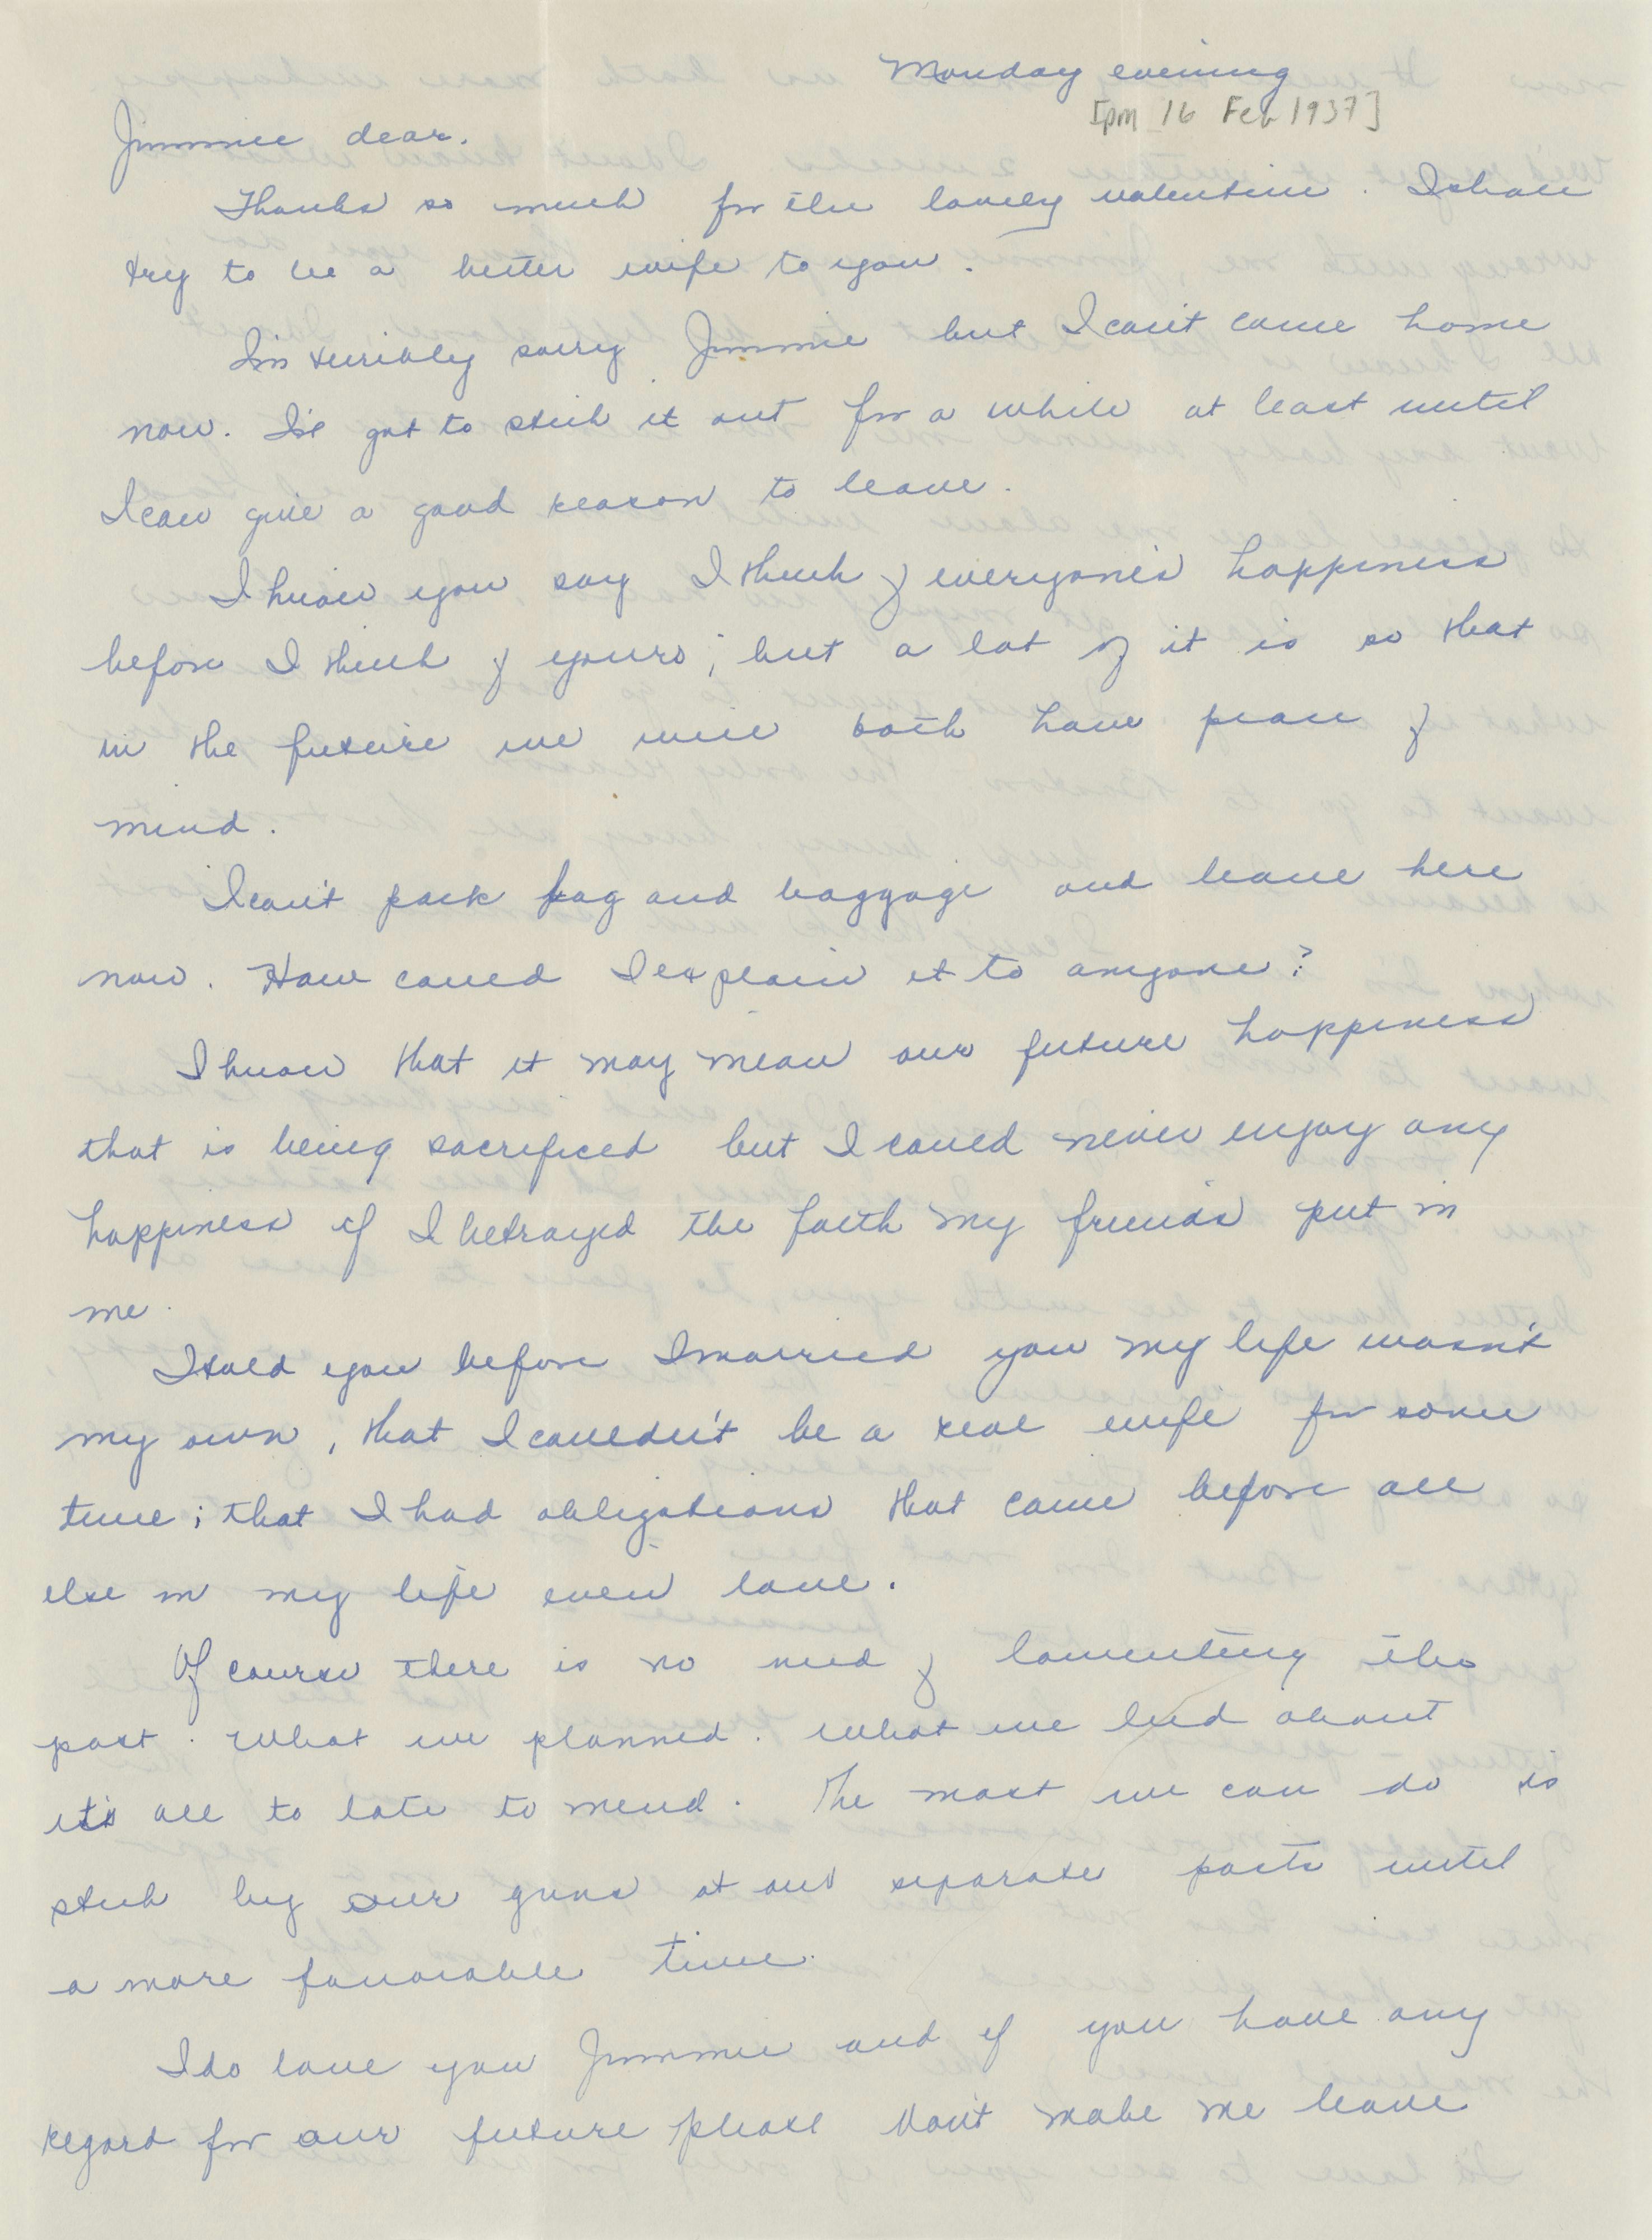 Monday evening
[pm 16 Feb 1937]
Jimmie dear.
Thanks so much for the lovely valentine. I shall
try to be a better wife to you.
I'm terribly sorry Jimmie but I can't come home
now. I've got to stick it out for a while at least until
I can give a good reason to leave.
I know you say I think of everyone's happiness
before I think of yours; but a lot of it is so that
in the future we will both have peace of
mind.
I can't pack bag and baggage and leave here
now. How could I explain it to anyone?
I know that it may mean our future happiness
that is being sacrificed but I could never enjoy any
happiness if I betrayed the faith my friends put in
me.
I told you before I married you my life wasn't
my own; that I couldn't be a real wife for some
time; that I had obligations that came before all
else in my life even love.
Of course there is no need of lamenting the
past. What we planned. What we lied about
it's all to late to mend. The most we can do is
stick by our guns at our separate posts until
a more favorable time.
I do love you Jimmie and if you have any
regard for our future please don't make me leave